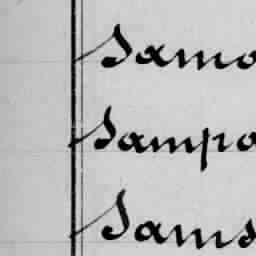 Samo
Sampo
Sams